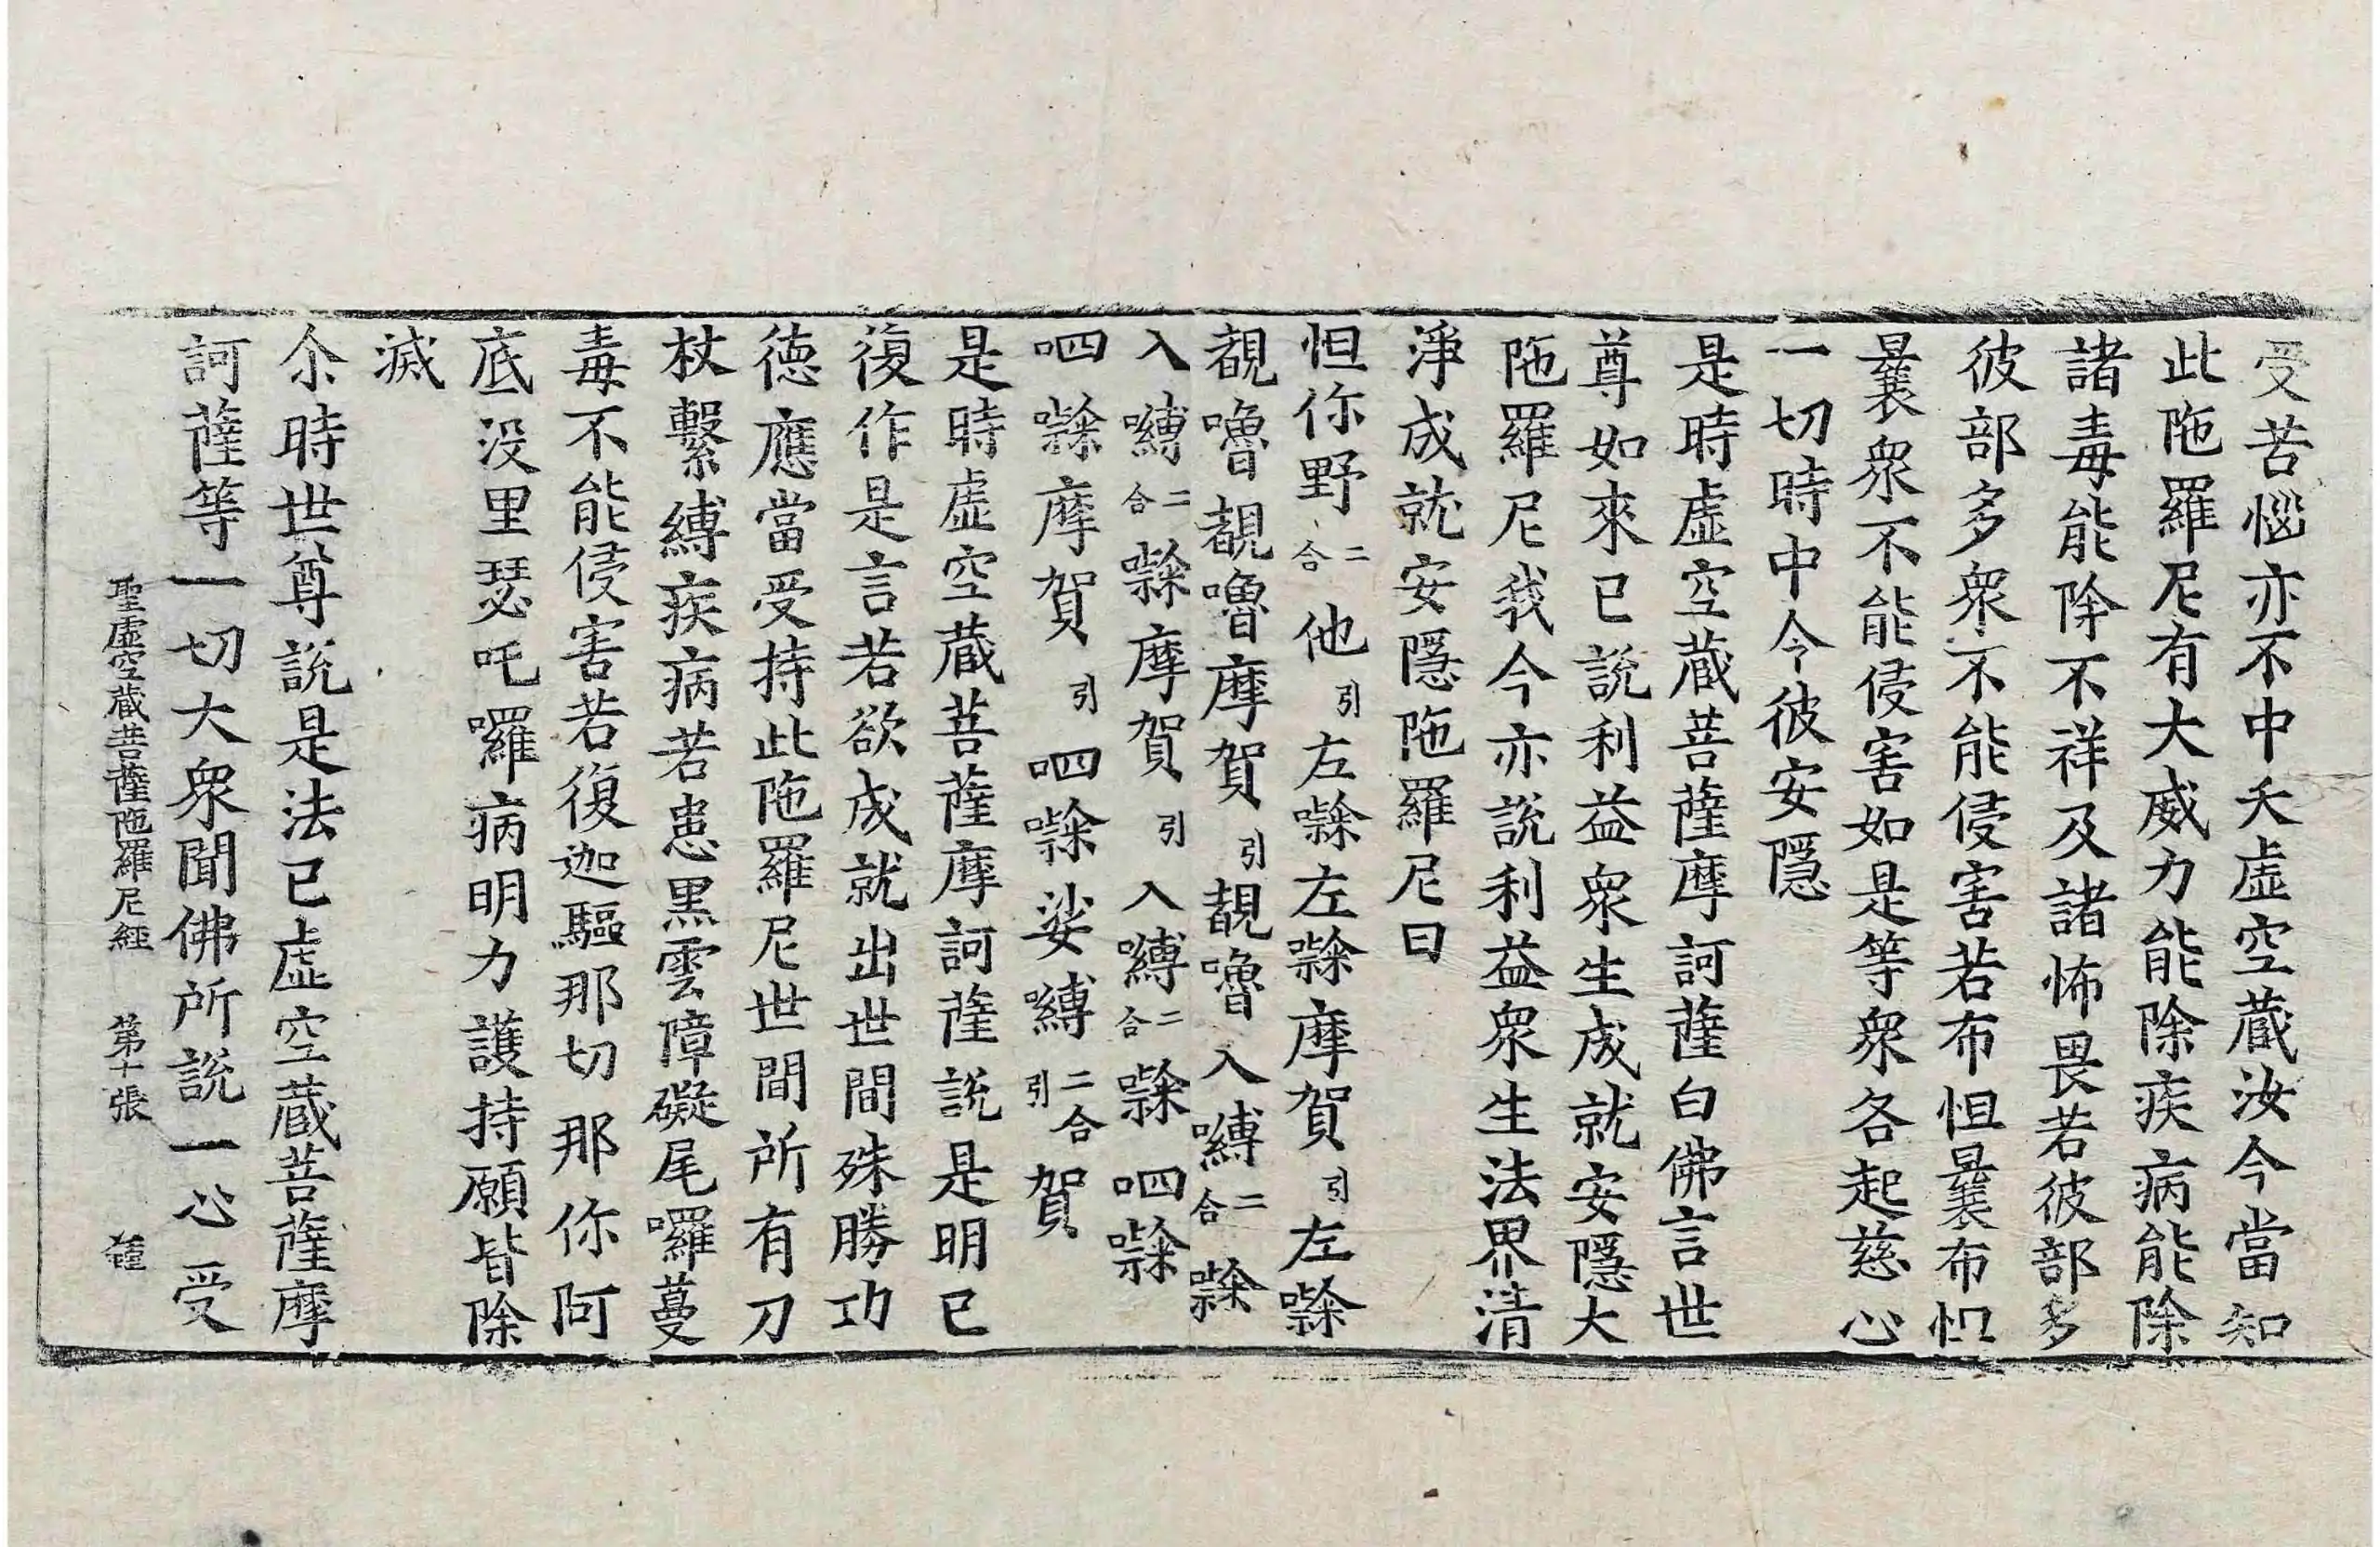 受苦惱亦不中夭虛空藏汝今當知
此陁羅尼有大威力能除疾病能除
諸毒能除不祥及諸怖畏若彼部多
彼部多衆不能侵害若布怛曩布怛
曩衆不能侵害如是等衆各起慈心
一切時中令彼安隱
是時虛空藏菩薩摩訶薩白佛言世
尊如來已說利益衆生成就安隱大
陁羅尼我今亦說利益衆生法界清
淨成就安隱陁羅尼曰
怛你野二合他引左㘑左㘑摩賀引左㘑
覩嚕覩嚕摩賀引覩嚕入嚩二合㘑
入嚩二合㘑摩賀引入嚩二合㘑呬㘑
呬㘑摩賀引呬㘑娑嚩二合引賀
是時虛空藏菩薩摩訶薩說是明已
復作是言若欲成就出世間殊勝功
德應當受持此陁羅尼世間所有刀
杖繫縛疾病若患黑雲障礙尾囉蔓
毒不能侵害若復迦驅那切那你阿
底没里瑟吒囉病明力護持願皆除
滅
尒時世尊說是法已虛空藏菩薩摩
訶薩等一切大衆聞佛所說一心受
聖虛空藏菩薩陁羅尼經 第十張